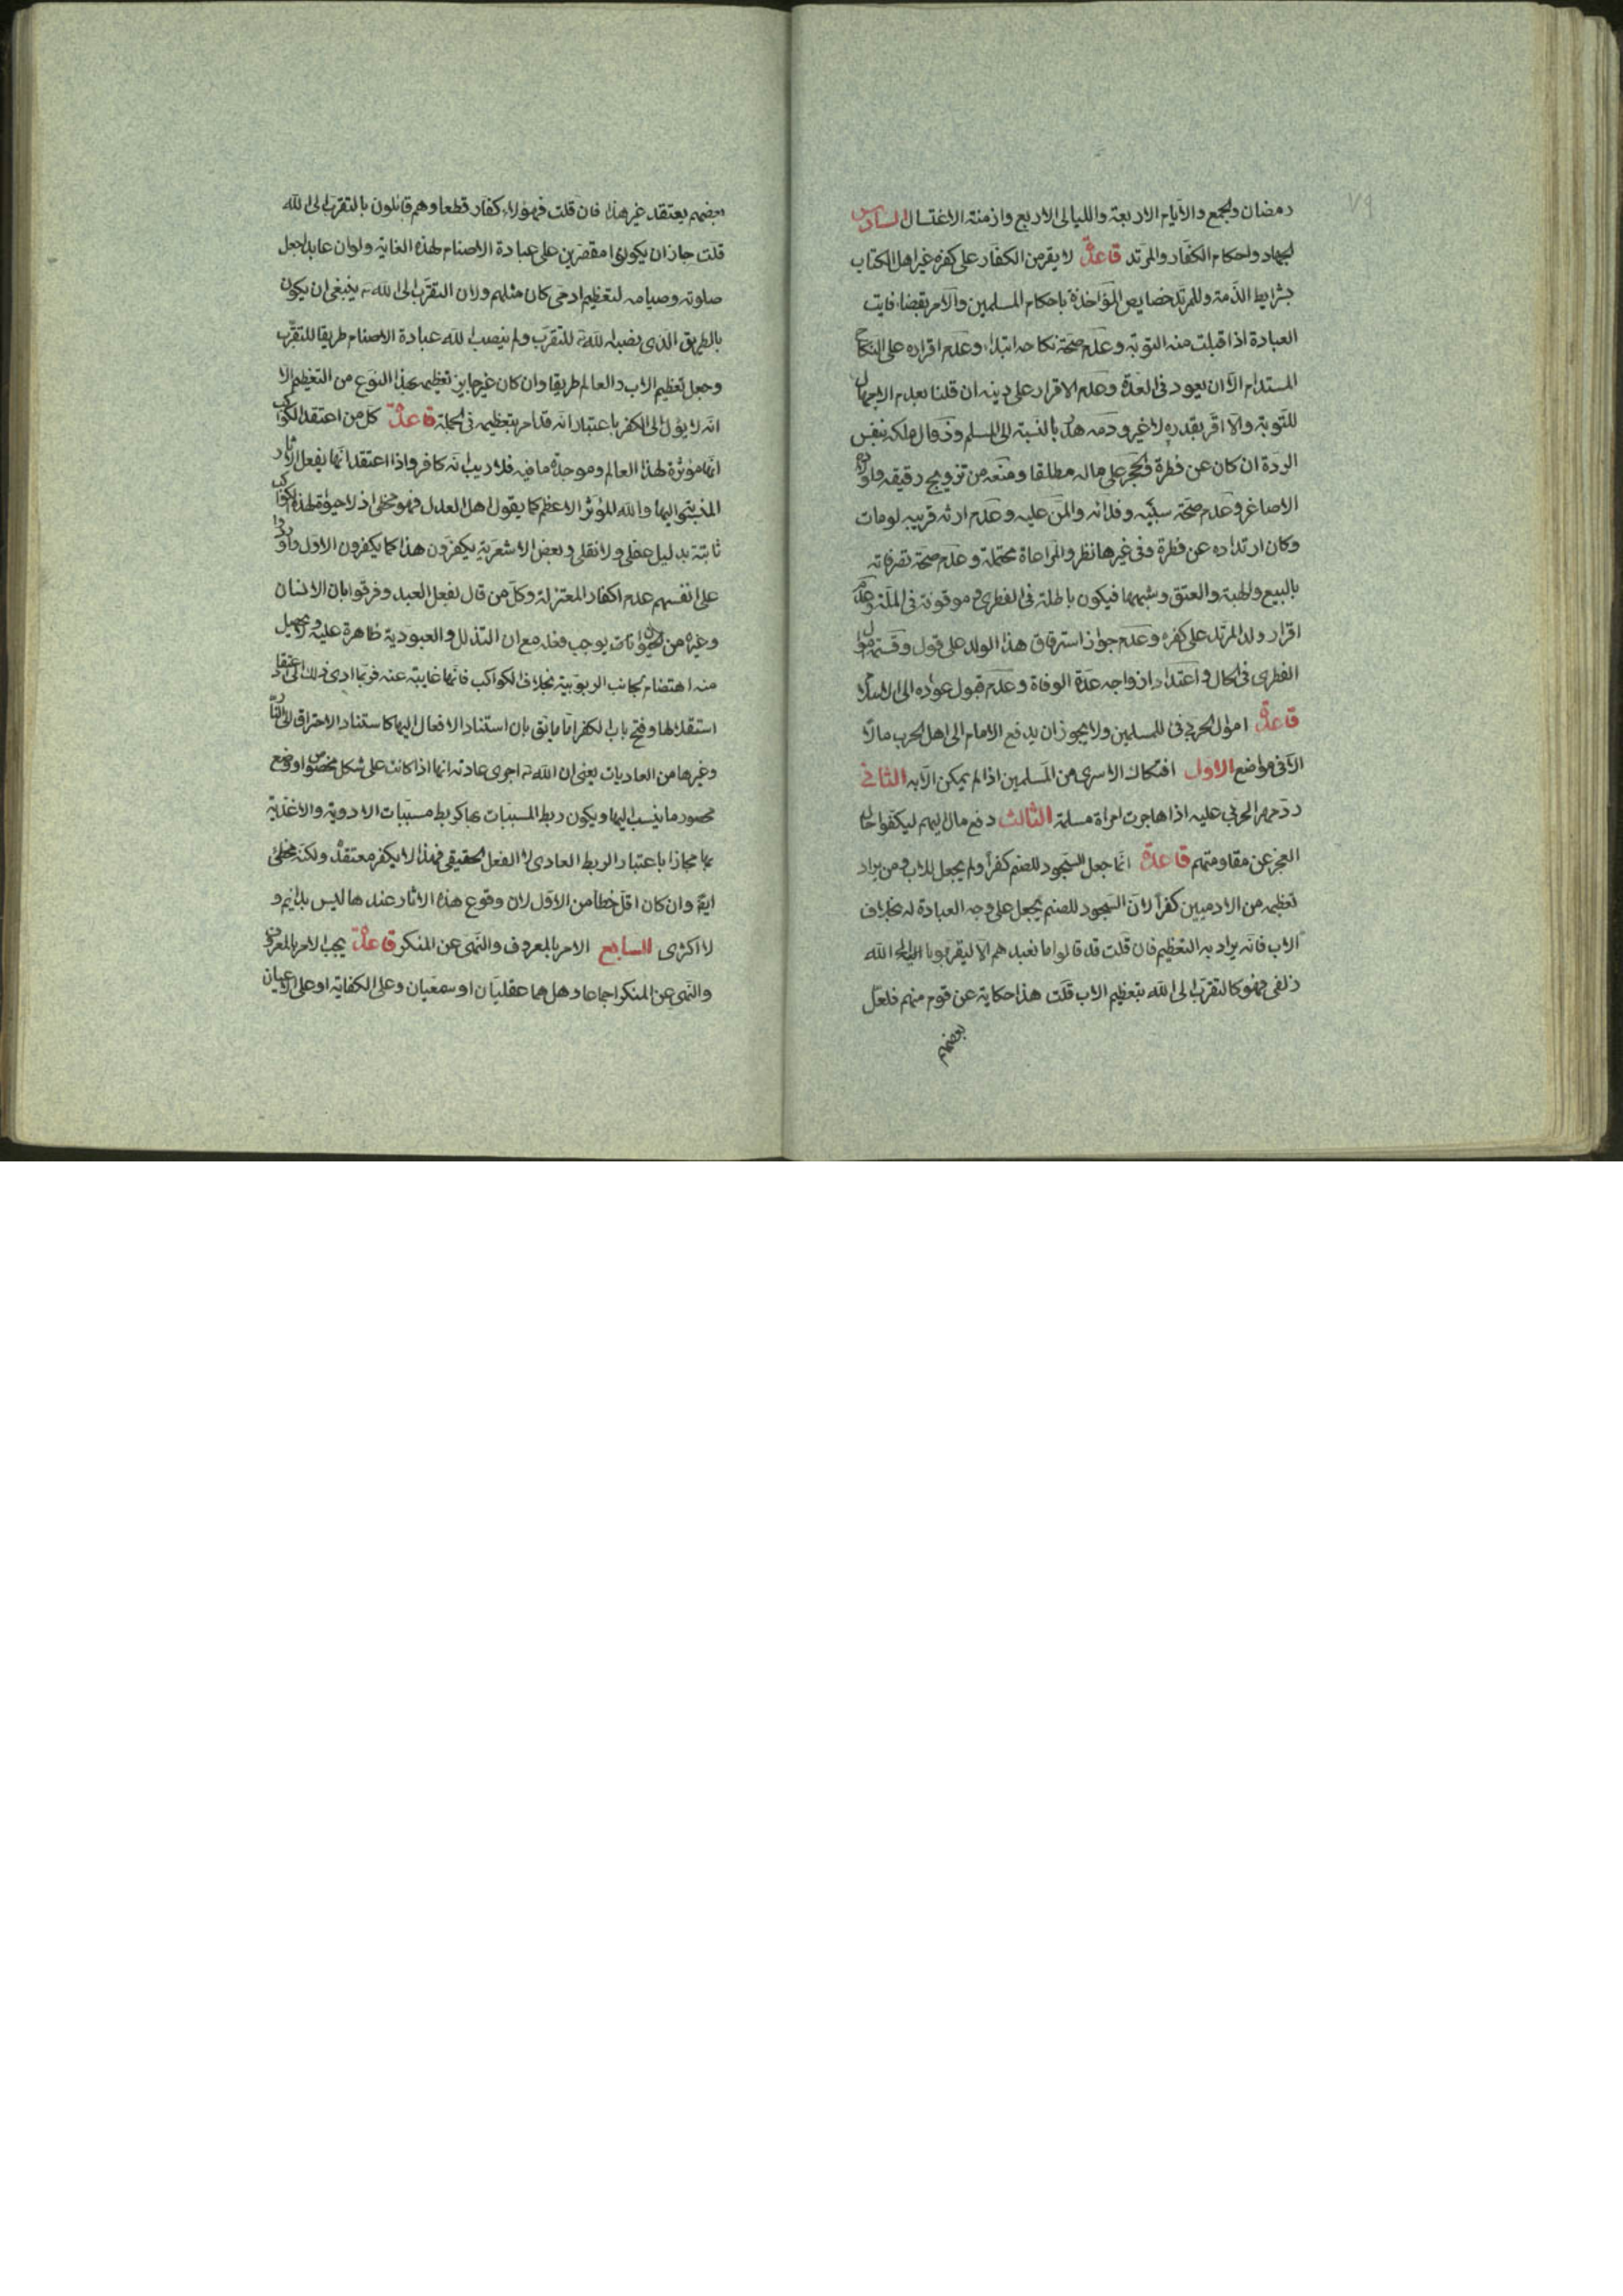 ٧٩
رمضان والجمع والايام الاربعة والليالى الاربع وازمنة الاغتسال السادس
الجهاد واحكام الكفار والمرتد قاعدة لا يقر من الكفار على كفره غير اهل الكتاب
بشرايط الذمة وللمرتد خصايص المؤاخذة باحكام المسلمين والامر بقضاء فايت
العبادة اذا قبلت منه التوبة وعدم صحة نكاحه ابتداء وعدم اقراره على النكاح
المستدام الا ان يعود فى العدة وعدم الاقرار على دينه ان قلنا بعدم الامهال
للتوبة والا اقر بقدره لا غير ودمه هدر بالنسبة الى المسلم وزوال ملكه بنفس
الردة ان كان عن فطرة والحجر على ماله مطلقا ومنعه من تزويج رقيقه واولاده
الاصاغر وعدم صحة سبيه وفدائه والمن عليه وعدم ارثه قريبه لو مات
وكان ارتداده عن فطرة وفى غيرها نظر والمراعاة محتملة وعدم صحة تصرفاته
بالبيع والهبة والعتق وشبهها فيكون باطلة فى الفطرى وموقوفة فى الملة وعدم
اقرار ولد المرتد على كفره وعدم جواز استرقاق هذا الولد على قول وقسمة اموال
الفطرى فى الحال واعتداد ازواجه عدة الوفاة وعدم قبول عوده الى الاسلام
قاعدة اموال الحربى فئ للمسلمين ولا يجوز ان يدفع الامام الى اهل الحرب مالا
الا فى مواضع الاول افتكاك الاسرى من المسلمين اذا لم يمكن الا به الثانى
رد مهر الحربى عليه اذا هاجرت امراة مسلمة الثالث دفع مال اليهم ليكفوا حال
العجز عن مقاومتهم قاعدة انما جعل السجود للصنم كفرا ولم يجعل للاب ومن يراد
تعظيمه من الادميين كفرا لان السجود للصنم يجعل على وجه العبادة له بخلاف
الاب فانه يراد به التعظيم فان قلت قد قالوا ما نعبدهم الا ليقربونا الى الله
زلفى فهو كالتقرب الى الله بتعظيم الاب قلت هذا حكاية عن قوم منهم فلعل
بعضهم
بعضهم يعتقد غير هذا فان قلت فهؤلاء كفار قطعا وهم قائلون بالتقرب الى الله
قلت جاز ان يكونوا مقصرين على عبادة الاصنام لهذه الغاية ولو ان عابدا جعل
صلوته وصيامه لتعظيم ادمى كان مثلهم ولان التقرب الى الله تع ينبغى ان يكون
بالطريق الذى نصبه الله تع للتقرب ولم ينصب الله عبادة الاصنام طريقا للتقرب
وجعل تعظيم الاب والعالم طريقا وان كان غير جايز تعظيمه بهذا النوع من التعظيم الا
انه لا يؤل الى الكفر باعتبار انه قد امر بتعظيمه فى الجملة قاعدة كل من اعتقد الكواكب
انها مؤثرة لهذا العالم وموجدة ما فيه فلا ريب انه كافر واذا اعتقد انها يفعل الاثار
المنسوبة اليها والله المؤثر الاعظم كما يقول اهل العدل فهو مخطئ اذ لا حيوة لهذه الكواكب
ثابتة بدليل عقلى ولا نقلى وبعض الاشعرية يكفرون هذا كما يكفرون الاول واوردوا
على انفسهم عدم اكفار المعتزلة وكل من قال بفعل العبد وفرقوا بان الانسان
وغيره من الحيوانات يوجب فعله مع ان التذلل والعبودية ظاهرة عليه ولا يحصيل
منه اهتضام لجانب الربوبية بخلاف الكواكب فانها غايبة عنه فربما ادى ذلك الى اعتقاد
استقلالها وفتح باب الكفر اما ما يق بان استناد الافعال اليها كاستناد الاحراق الى النار
وغيرها من العاديات يعنى ان الله تع اجرى عادته انها اذا كانت على شكل مخصوص او وضع
محصور ما ينسب اليها ويكون ربط المسببات بها كربط مسببات الادوية والاغذية
بها مجازا باعتبار الربط العادى لا الفعل الحقيقى فهذا لا يكفر معتقده ولكنه مخطئ
ايض وان كان اقل خطأ من الاول لان وقوع هذه الاثار عندها ليس بدائم و
لا اكثرى السابع الامر بالمعروف والنهى عن المنكر قاعدة يجب الامر بالمعروف
والنهى عن المنكر اجماعا وهل هما عقليان او سمعيان وعلى الكفاية او على الاعيان